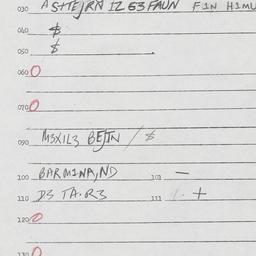 030 A S+TEJRN IZ 63 FAUN FIN HIMU
040 $
050 $
060 O
070 O
090 M3XIL3 BEJIN / $
100 BARMINA,ND 101 —
110 D3 TA.R3 111 +
120 O
130 O